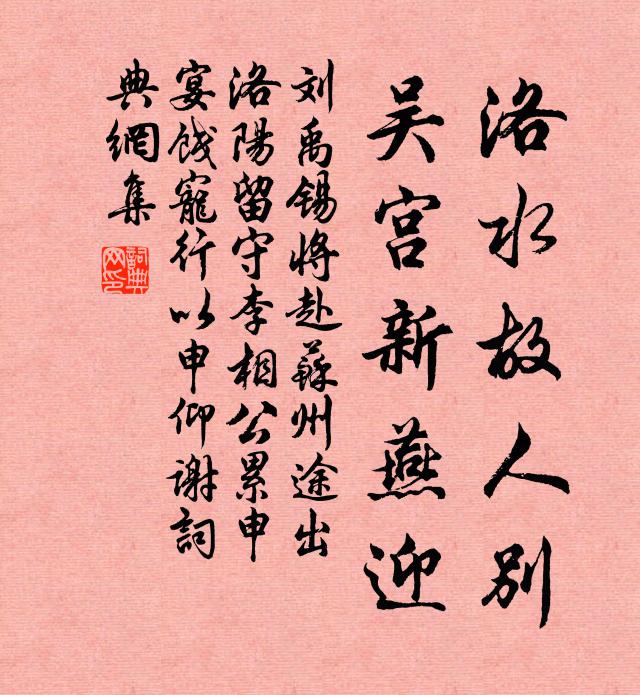 洛水故人别
吴宫新燕迎
刘禹锡将赴蘇州途出
洛陽留守李相公累申
宴餞寵行以申仰谢詞
典網集
詞典
网印